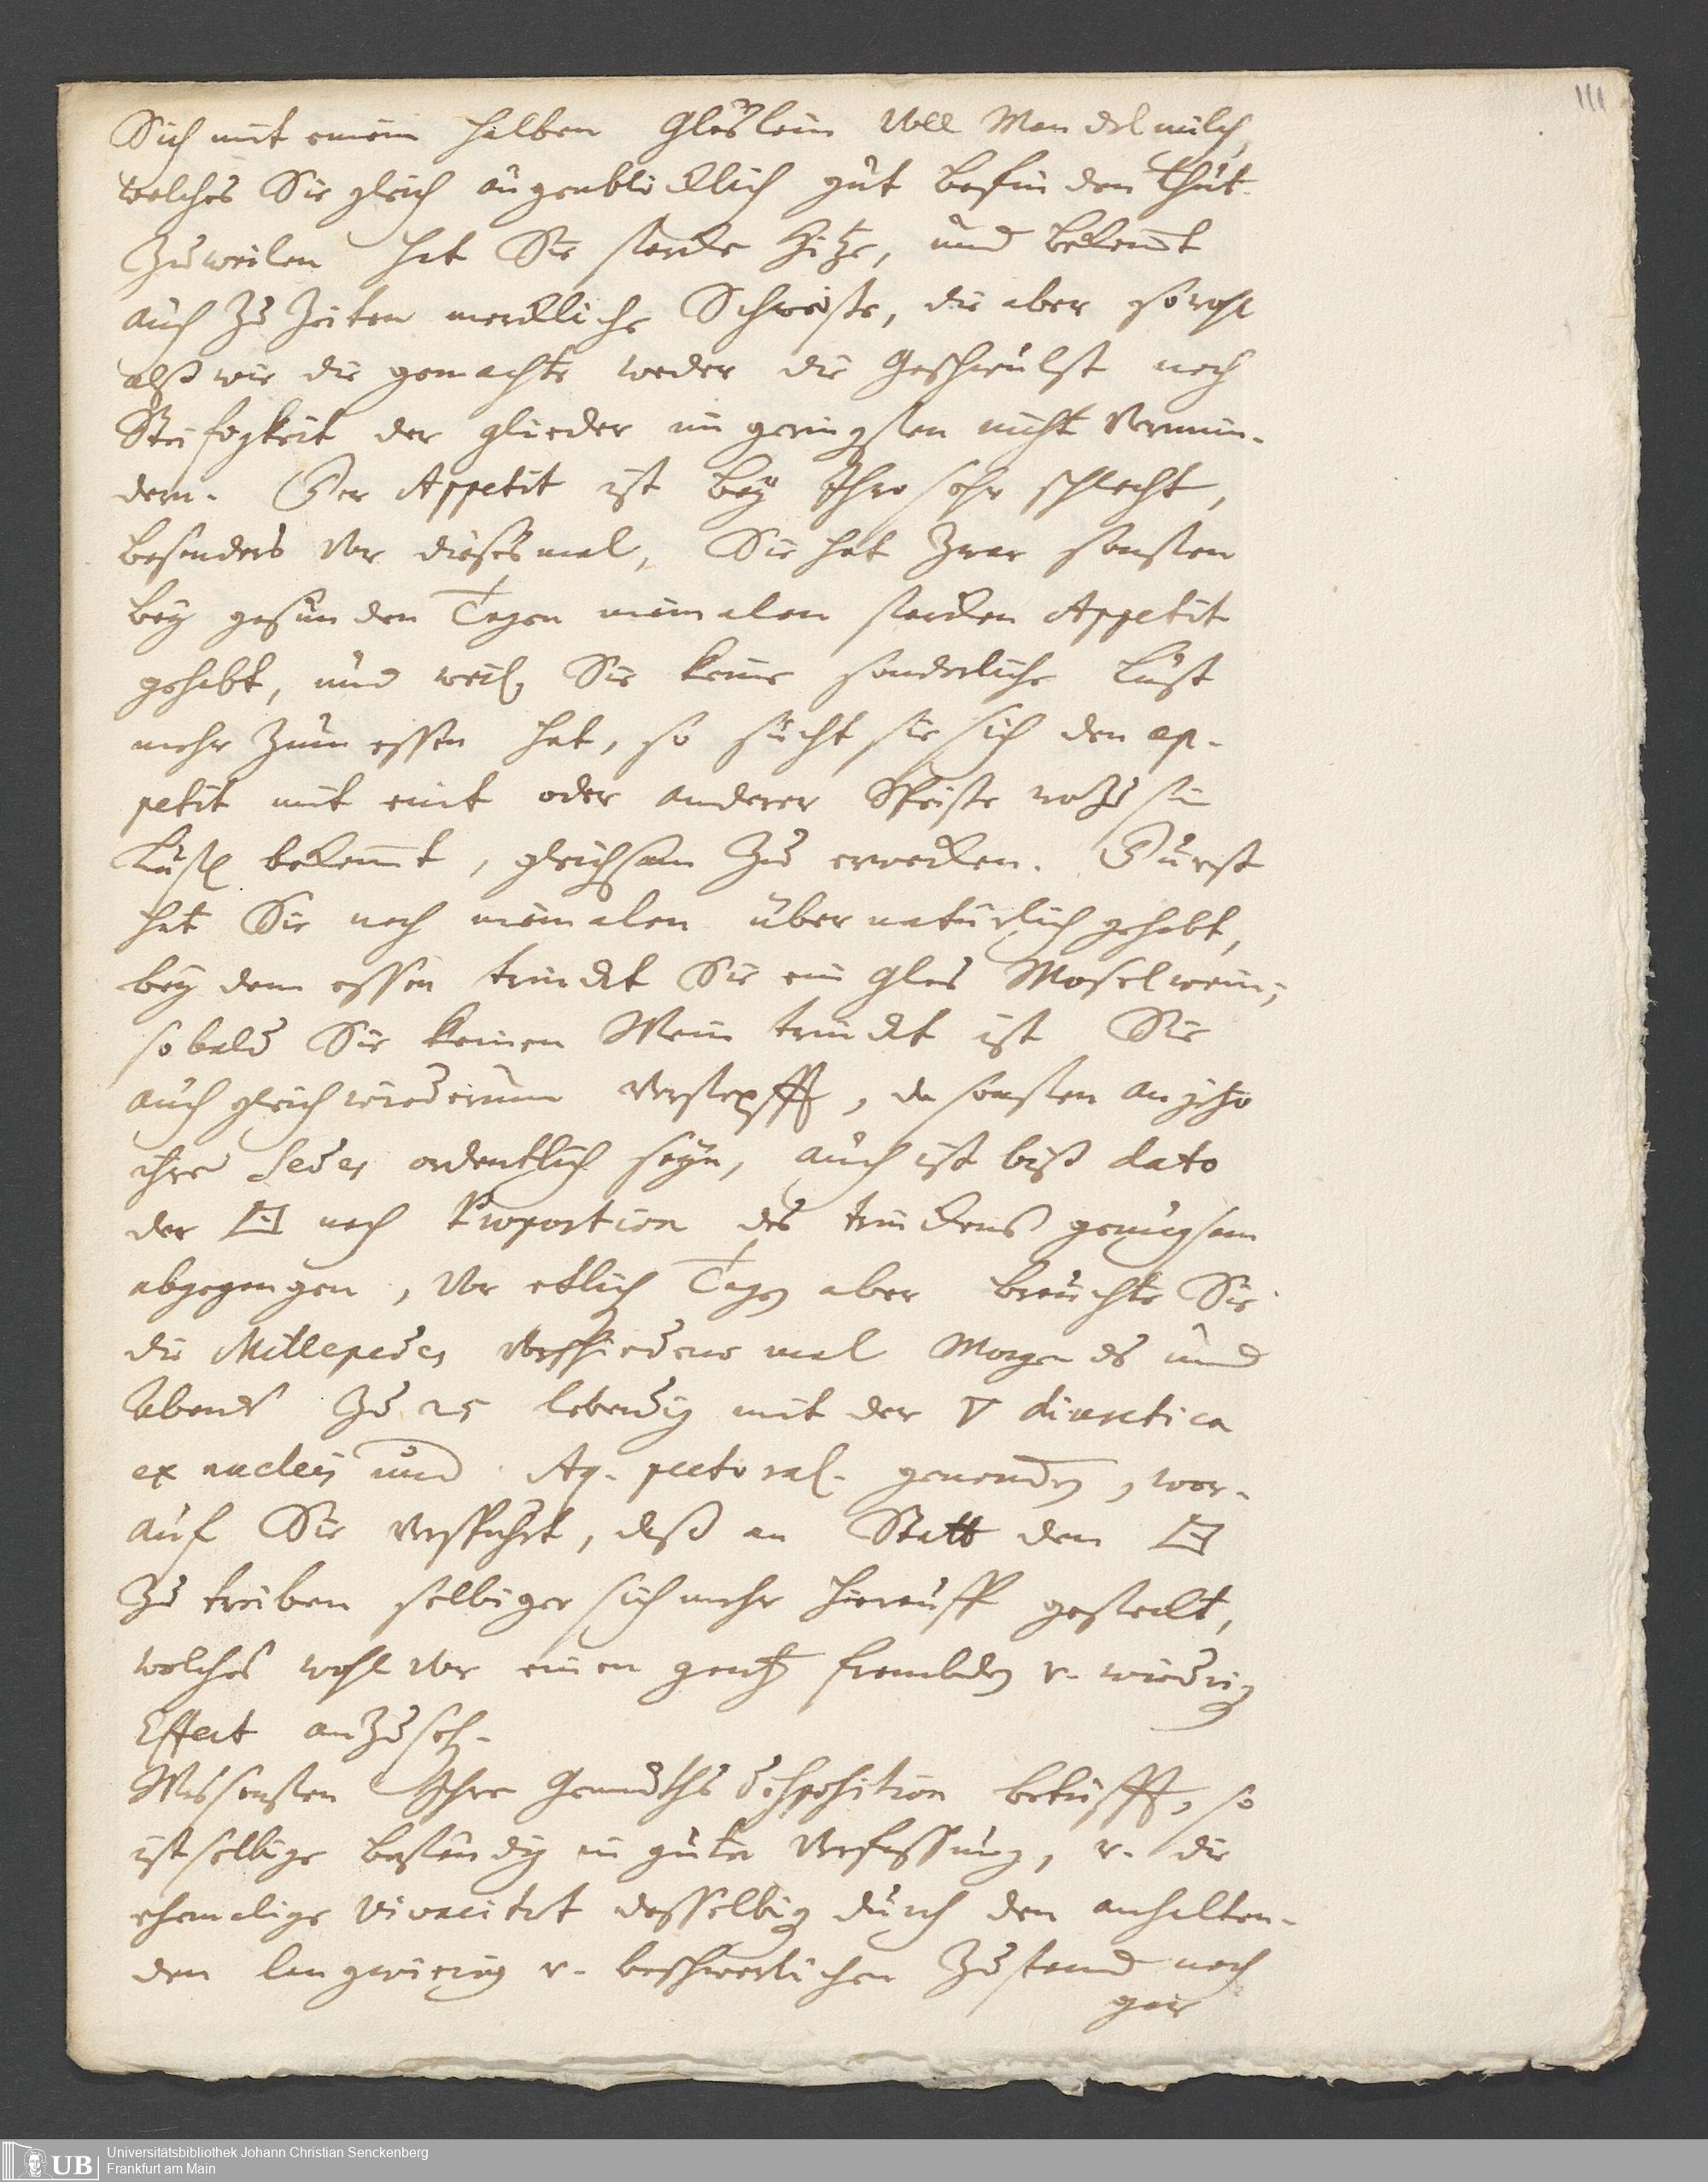 111
Sich mit einem halben Gläslein Voll Mandelmilch,
welches Sie gleich augenblicklich gut befinden thut.
Zuweilen hat Sie starcke Hitze, und bekom̅t
auch zu Zeiten merckliche Schweiße, die aber sowohl
alß wie die gemachte weder die Geschwulst noch
Steifigkeit der glieder im geringsten nicht Vermin-
dern. Der Appetit ist bey Ihro sehr schlecht,
besonders Vor dießes mal, Sie hat zwar sonsten
bey gesunden Tagen niemalen starcken Appetit
gehabt, und weil Sie keine sonderliche Lust
mehr zum essen hat, so sucht sie sich den ap-
petit mit eint oder anderer Speiße wozu sie
Lust bekom̅t, gleichsam zu erwecken. Durst
hat Sie noch niemalen übernatürlich gehabt,
bey dem essen trinckt Sie ein Glas Moselwein;
so bald Sie keinen Wein trinckt ist Sie
auch gleich wiederumb Verstopfft, da sonsten anjetzo
ihre Sedes ordentlich seyn, auch ist biß dato
der nach Proportion des trinckens genugsam
abgegangen, Vor etlich Tagen aber brauchte Sie
die Millepedes Verschiedene mal Morgends und
Abends zu 25 lebendig mit der ▽ diuretica
ex nucleis und Aq. pectoral. genommen, wor-
auf Sie Verspührt, daß an Statt den
zu treiben selbiger sich mehr hierauff gestellt,
welches wohl Vor einen gantz frembden u. wiedrig
Effect anzusehen.
Was sonsten Ihre Gemüths disposition betrifft, so
ist selbige beständig in guter Verfassung, u. die
ehemalige Vivacitet desselbig durch den anhalten-
den langwierig u. beschwerlichen Zustand noch
gar
Universitätsbibliothek Johann Christian Senckenberg
Frankfurt am Main
UB